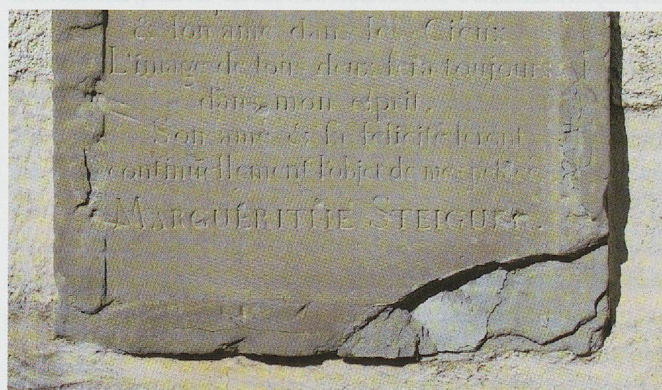 & ſon ame dans les Cieux
L'image de tous deux ſera toujours
dans mon eſprit.
Son ame & ſa felicité ſeront
continuëllement l'objet de mes penſées
MARGUERITHE STEIGUER.